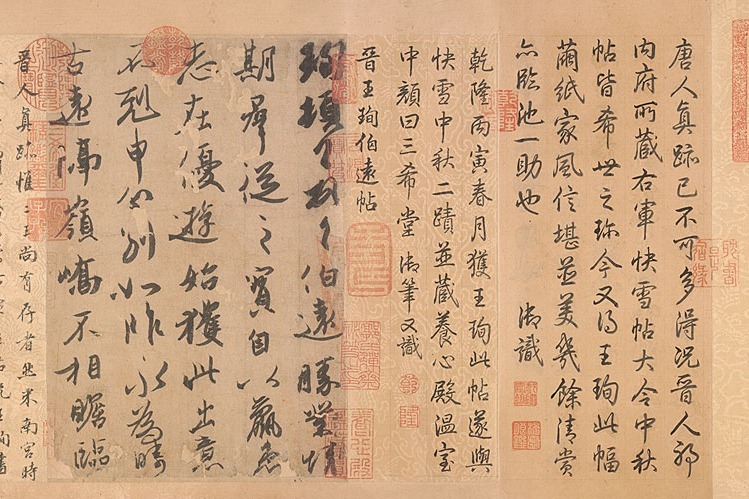 唐人真跡已不可多得況晉人耶
內府所藏右軍快雪帖大令中秋
帖皆希世之珍今又得王珣此幅
繭紙家風信堪並美幾餘清賞
亦臨池一助也 御識
乾隆丙寅春月獲王珣此帖遂與
快雪中秋二蹟並藏養心殿溫室
中顏曰三希堂御筆又識
乾隆
晉王珣伯遠帖
珣頓首頓首伯遠勝業情
期群從之寶自以羸患
志在優遊始獲此出意
不剋申分別如昨永為疇
古遠隔嶺嶠不相瞻臨
晉人真跡惟二王尚有存者然米南宮時